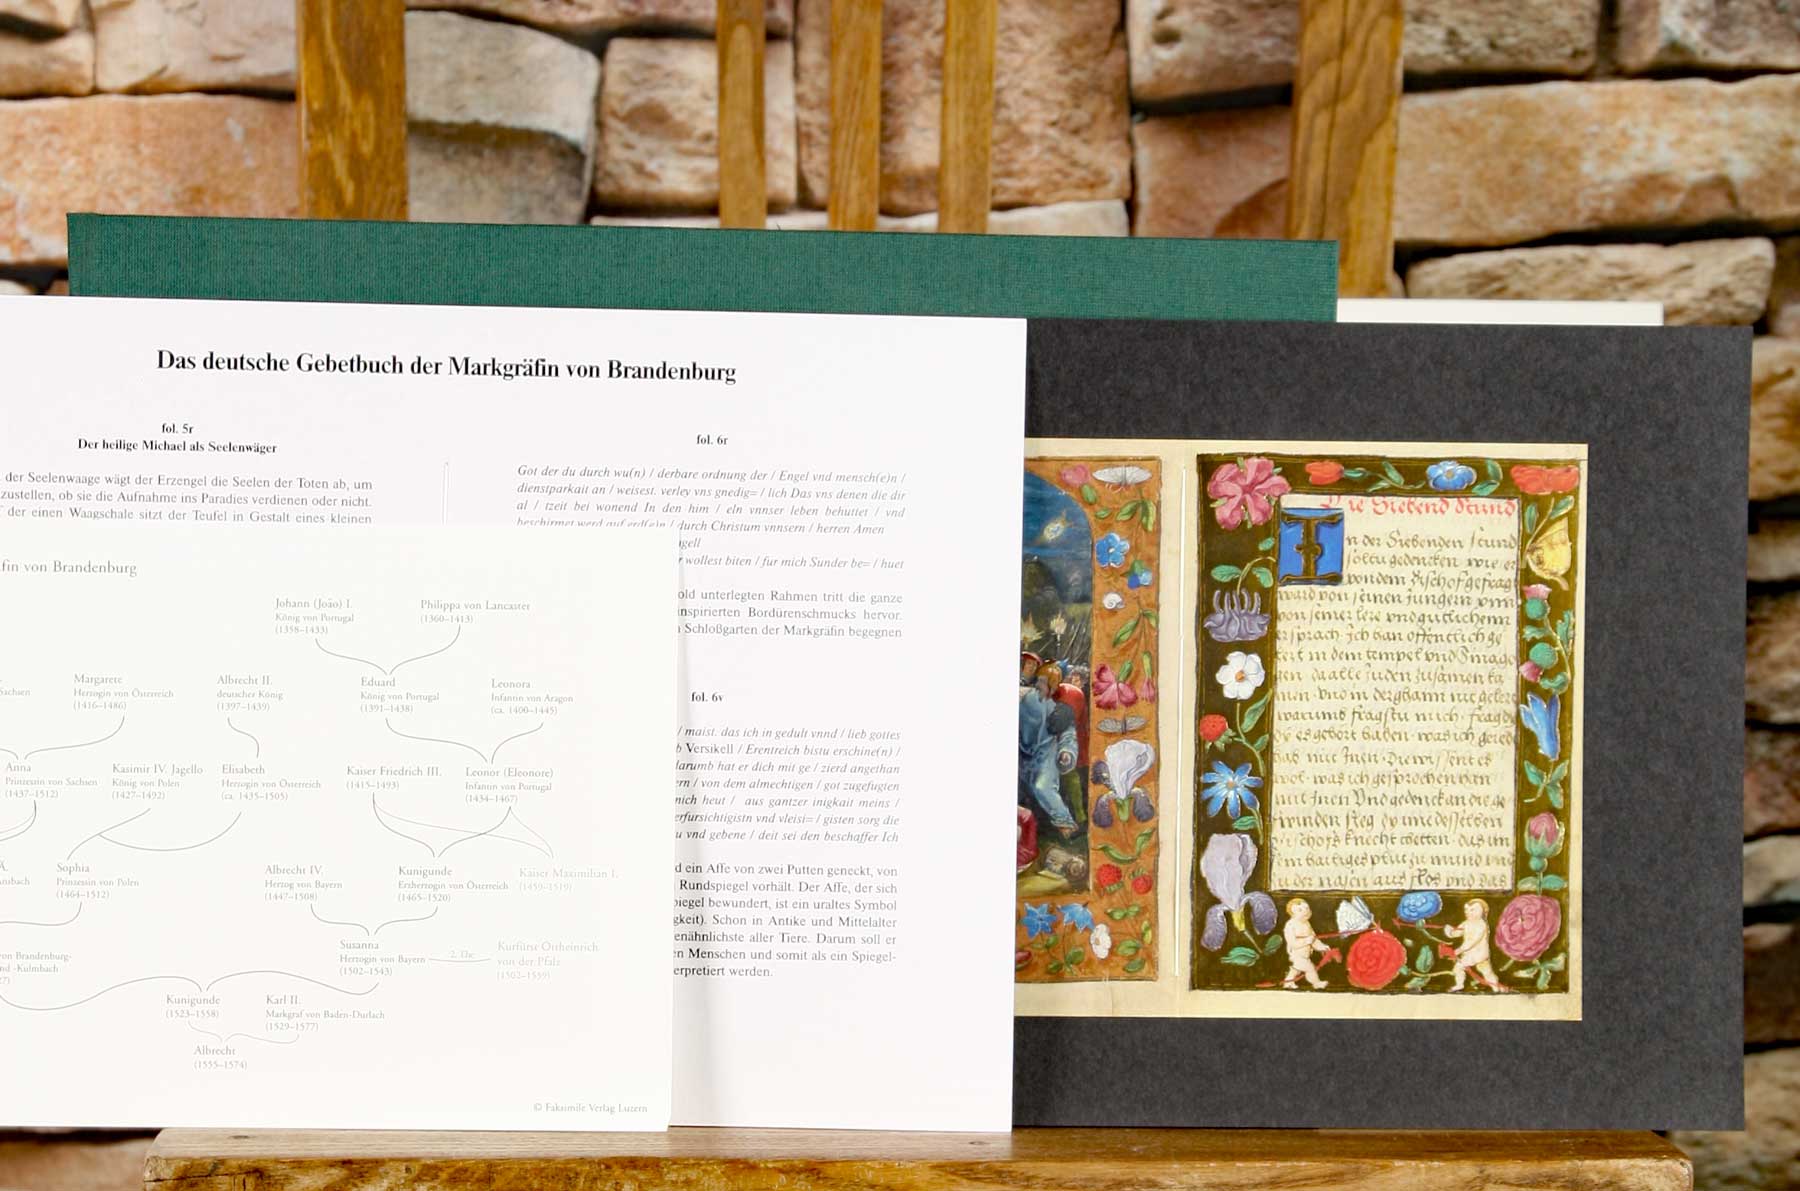 Das deutsche Gebetbuch der Markgräfin von Brandenburg
fol. 5r
Der heilige Michael als Seelenwäger
der Seelenwaage wägt der Erzengel die Seelen der Toten ab, um
zustellen, ob sie die Aufnahme ins Paradies verdienen oder nicht.
der einen Waagschale sitzt der Teufel in Gestalt eines kleinen
fol. 6r
Got der du durch wu(n) / derbare ordnung der / Engel vnd mensch(e)n /
dienstparkait an / weisest. verley vns gnedig= / lich Das vns denen die dir
al / tzeit bei wonend In den him / eln vnnser leben behuttet / vnd
beschirmet werd auf erd(e)n / durch Christum vnnsern / herren Amen
ngell
wollest biten / fur mich Sunder be= / huet
old unterlegten Rahmen tritt die ganze
nspirierten Bordürenschmucks hervor.
Schloßgarten der Markgräfin begegnen
fol. 6v
/ maist. das ich in gedult vnnd / lieb gottes
b Versikell / Erentreich bistu erschine(n) /
darumb hat er dich mit ge / zierd angethan
ern / von dem almechtigen / got zugefugten
mich heut / aus gantzer inigkait meins /
erfursichtigistn vnd vleisi= / gisten sorg die
u vnd gebene / deit sei den beschaffer Ich
d ein Affe von zwei Putten geneckt, von
Rundspiegel vorhält. Der Affe, der sich
piegel bewundert, ist ein uraltes Symbol
gkeit). Schon in Antike und Mittelalter
enähnlichste aller Tiere. Darum soll er
en Menschen und somit als ein Spiegel-
erpretiert werden.
fin von Brandenburg
Johann (João) I.
König von Portugal
(1358–1433)
Philippa von Lancaster
(1360–1413)
Sachsen
Margarete
Herzogin von Österreich
(1416–1486)
Albrecht II.
deutscher König
(1397–1439)
Eduard
König von Portugal
(1391–1438)
Leonora
Infantin von Aragon
(ca. 1400–1445)
Anna
Prinzessin von Sachsen
(1437–1512)
Kasimir IV. Jagello
König von Polen
(1427–1492)
Elisabeth
Herzogin von Österreich
(ca. 1435–1505)
Kaiser Friedrich III.
(1415–1493)
Leonor (Eleonore)
Infantin von Portugal
(1434–1467)
Ä.
nsbach
Sophia
Prinzessin von Polen
(1464–1512)
Albrecht IV.
Herzog von Bayern
(1447–1508)
Kunigunde
Erzherzogin von Österreich
(1465–1520)
Kaiser Maximilian I.
(1459–1519)
von Brandenburg-
nd -Kulmbach
27)
Susanna
Herzogin von Bayern
(1502–1543)
2. Ehe
Kurfürst Ottheinrich
von der Pfalz
(1502–1559)
Kunigunde
(1523–1558)
Karl II.
Markgraf von Baden-Durlach
(1529–1577)
Albrecht
(1555–1574)
© Faksimile Verlag Luzern
Die Siebend Stund
In der Siebenden stund
soltu gedencken wie er
von dem Bischof gefragt
ward von seinen Jungern vnn
von seiner lere vnd gutlichenn
er sprach Ich han offentlich ge
lert in dem tempel vnd Sinago
gen da alle Juden zusamen ka
men vnd in der ghaim nit gelert
warumb fragstu mich frag die
die es gehort haben was ich geredt
hab mit Inen Die wissent es
wol was ich gesprochen han
mit Inen Vnd gedenck an die ge
swinden sleg die Im desselben
Bischofs knecht thetten das im
sein hailiges plut zu mund vnd
zu der nasen aus flos vnd das